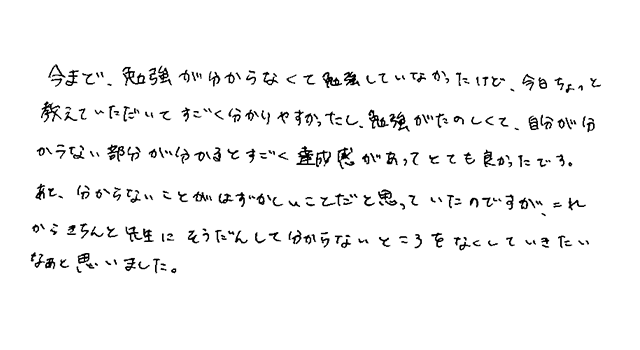 今まで、勉強が分からなくて勉強していなかったけど、今日ちょっと
教えていただいてすごく分かりやすかったし、勉強がたのしくて、自分が分
からない部分が分かるとすごく達成感があってとても良かったです。
あと、分からないことがはずかしいことだと思っていたのですが、これ
からきちんと先生にそうだんして分からないところをなくしていきたい
なぁと思いました。